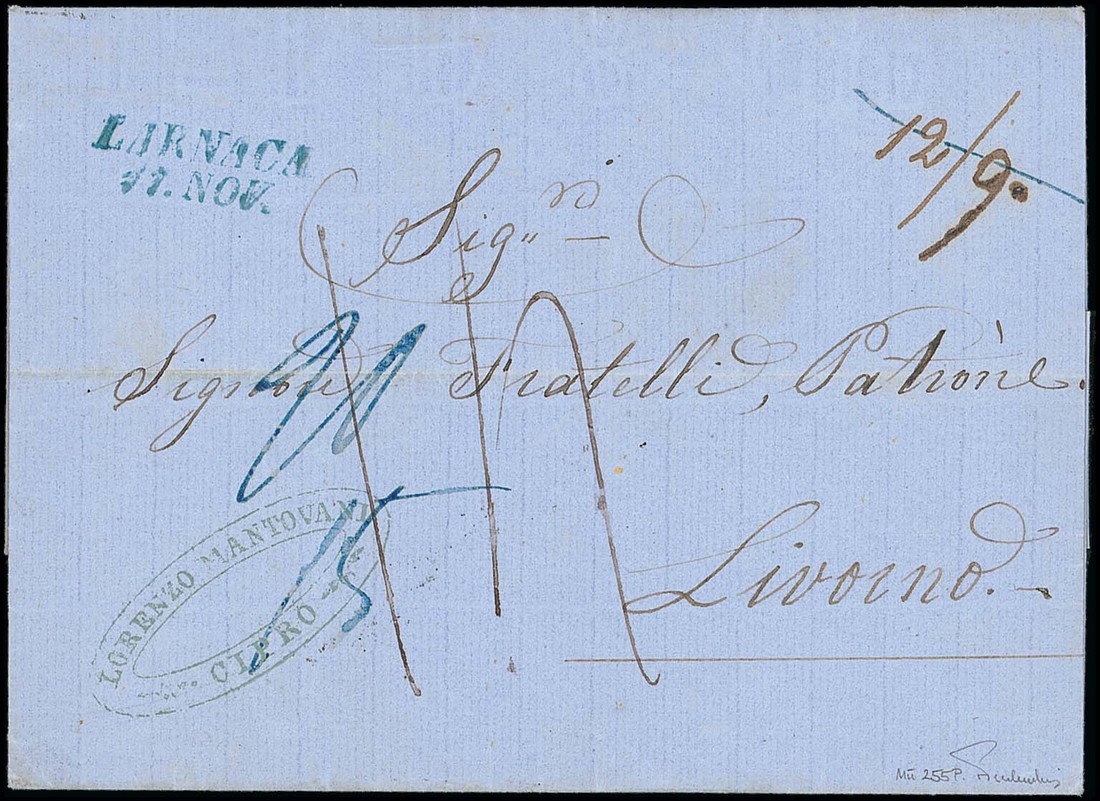 LARNACA
11. NOV.
12/9.
Sig.ri
Signori Fratelli, Patrone.
Livorno.
LORENZO MANTOVANI
CIPRO
15
Mü 255P.